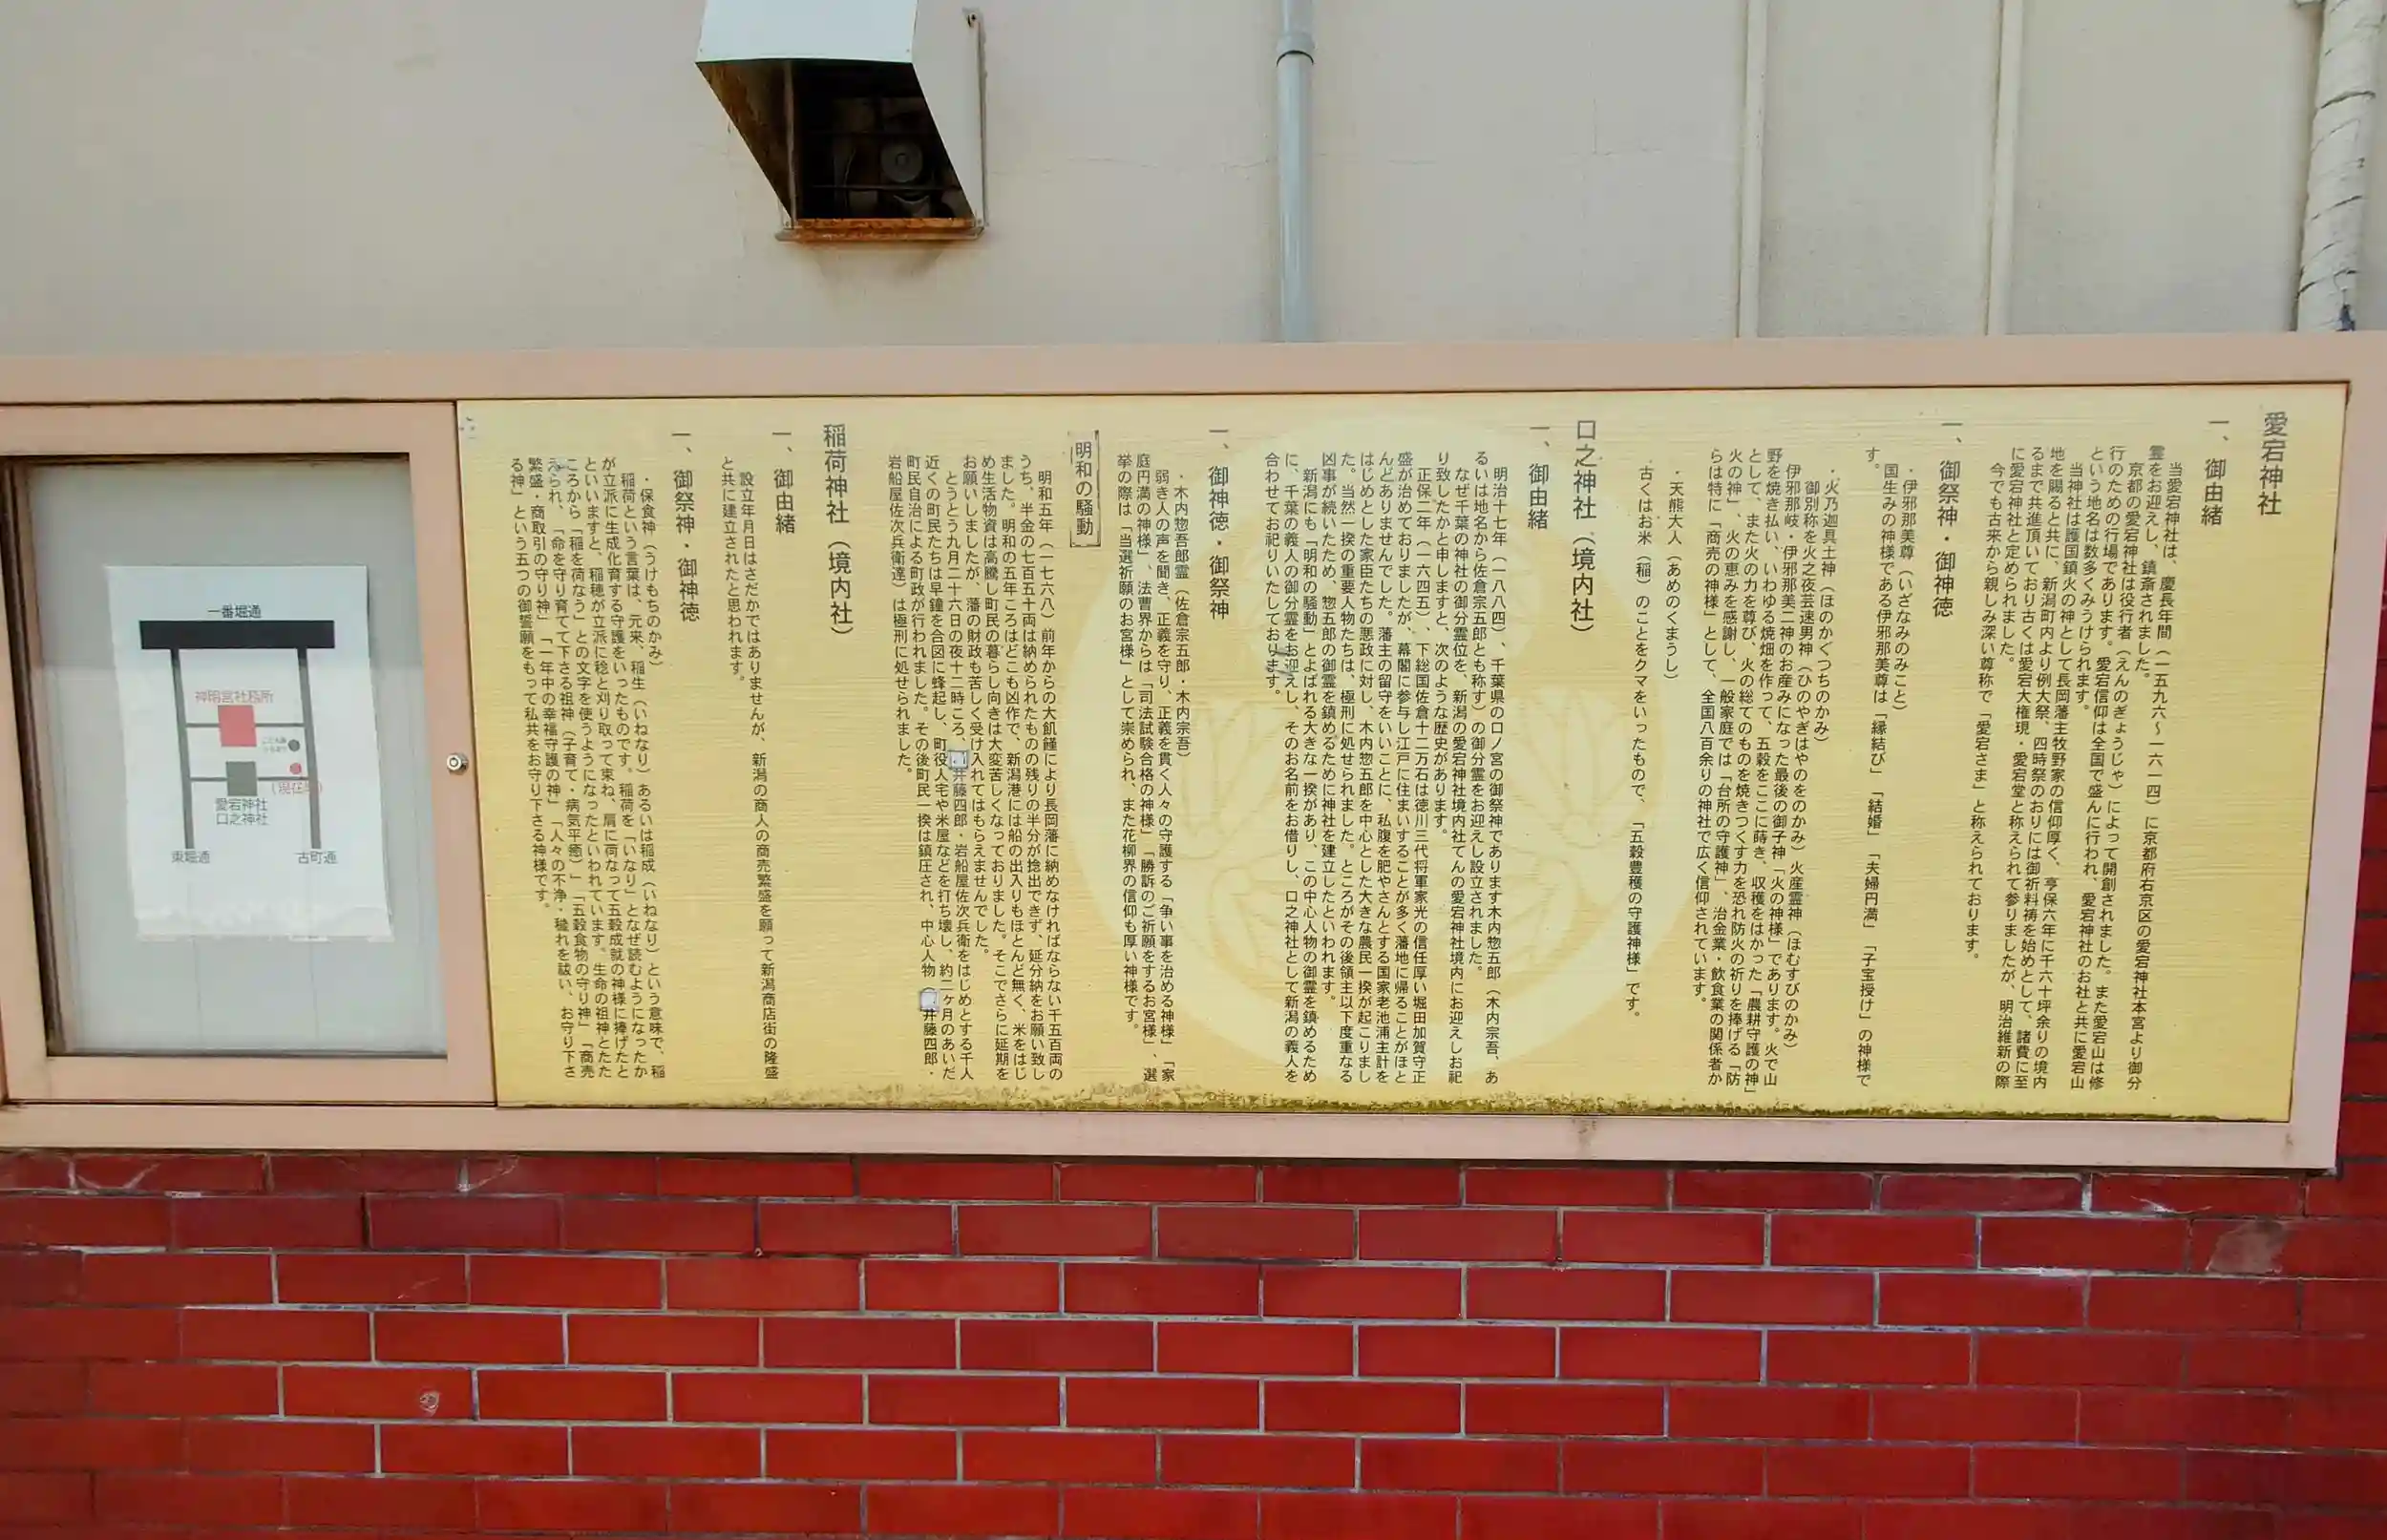 愛宕神社
一、御由緒
当愛宕神社は、慶長年間（一五九六～一六一四）に京都府右京区の愛宕神社本宮より御分
霊をお迎えし、鎮斎されました。
京都の愛宕神社は役行者（えんのぎょうじゃ）によって開創されました。また愛宕山は修
行のための行場であります。愛宕信仰は全国で盛んに行われ、愛宕神社のお社と共に愛宕山
という地名は数多くみうけられます。
当神社は護国鎮火の神として長岡藩主牧野家の信仰厚く、亨保六年に千六十坪余りの境内
地を賜ると共に、新潟町内より例大祭、四時祭のおりには御祈料祷を始めとして、諸費に至
るまで共進頂いており古くは愛宕大権現・愛宕堂と称えられて参りましたが、明治維新の際
に愛宕神社と定められました。
今でも古来から親しみ深い尊称で「愛宕さま」と称えられております。
一、御祭神・御神徳
・伊邪那美尊（いざなみのみこと）
国生みの神様である伊邪那美尊は「縁結び」「結婚」「夫婦円満」「子宝授け」の神様で
す。
・火乃迦具土神（ほのかぐつちのかみ）
御別称を火之夜芸速男神（ひのやぎはやのをのかみ）火産霊神（ほむすびのかみ）
伊邪那岐・伊邪那美二神のお産みになった最後の御子神「火の神様」であります。火で山
野を焼き払い、いわゆる焼畑を作って、五穀をここに蒔き、収穫をはかった「農耕守護の神」
として、また火の力を尊び、火の総てのものを焼きつくす力を恐れ防火の祈りを捧げる「防
火の神」、火の恵みを感謝し、一般家庭では「台所の守護神」、治金業・飲食業の関係者か
らは特に「商売の神様」として、全国八百余りの神社で広く信仰されています。
・天熊大人（あめのくまうし）
古くはお米（稲）のことをクマをいったもので、「五穀豊穫の守護神様」です。
口之神社（境内社）
一、御由緒
明治十七年（一八八四）、千葉県の口ノ宮の御祭神であります木内惣五郎（木内宗吾、あ
るいは地名から佐倉宗五郎とも称す）の御分霊をお迎えし設立されました。
なぜ千葉の神社の御分霊位を、新潟の愛宕神社境内社てんの愛宕神社境内にお迎えしお祀
り致したかと申しますと、次のような歴史があります。
正保二年（一六四五）、下総国佐倉十二万石は徳川三代将軍家光の信任厚い堀田加賀守正
盛が治めておりましたが、幕閣に参与し江戸に住まいすることが多く藩地に帰ることがほと
んどありませんでした。藩主の留守をいいことに、私腹を肥やさんとする国家老池浦主計を
はじめとした家臣たちの悪政に対し、木内惣五郎を中心とした大きな農民一揆が起こりまし
た。当然一揆の重要人物たちは、極刑に処せられました。ところがその後領主以下度重なる
凶事が続いたため、惣五郎の御霊を鎮めるために神社を建立したといわれます。
新潟にも「明和の騒動」とよばれる大きな一揆があり、この中心人物の御霊を鎮めるため
に、千葉の義人の御分霊をお迎えし、そのお名前をお借りし、口之神社として新潟の義人を
合わせてお祀りいたしております。
一、御神徳・御祭神
・木内惣吾郎霊（佐倉宗五郎・木内宗吾）
弱き人の声を聞き、正義を守り、正義を貫く人々の守護する「争い事を治める神様」「家
庭円満の神様」、法曹界からは「司法試験合格の神様」「勝訴のご祈願をするお宮様」、選
挙の際は「当選祈願のお宮様」として崇められ、また花柳界の信仰も厚い神様です。
明和の騒動
明和五年（一七六八）前年からの大飢饉により長岡藩に納めなければならない千五百両の
うち、半金の七百五十両は納められたものの残りの半分が捻出できず、延分納をお願い致し
ました。明和の五年ころはどこも凶作で、新潟港には船の出入りもほとんど無く、米をはじ
め生活物資は高騰し町民の暮らし向きは大変苦しくなっておりました。そこでさらに延期を
お願いしましたが、藩の財政も苦しく受け入れてはもらえませんでした。
とうとう九月二十六日の夜十二時ころ、井藤四郎・岩船屋佐次兵衛をはじめとする千人
近くの町民たちは早鐘を合図に蜂起し、町役人宅や米屋などを打ち壊し、約二ヶ月のあいだ
町民自治による町政が行われました。その後町民一揆は鎮圧され、中心人物（井藤四郎・
岩船屋佐次兵衛達）は極刑に処せられました。
稲荷神社（境内社）
一、御由緒
設立年月日はさだかではありませんが、新潟の商人の商売繁盛を願って新潟商店街の隆盛
と共に建立されたと思われます。
一、御祭神・御神徳
・保食神（うけもちのかみ）
稲荷という言葉は、元来、稲生（いねなり）あるいは稲成（いねなり）という意味で、稲
が立派に生成化育する守護をいったものです。稲荷を「いなり」となぜ読むようになったか
といいますと、稲穂が立派に稔と刈り取って束ね、肩に荷なって五穀成就の神様に捧げたと
ころから「稲を荷なう」との文字を使うようになったといわれています。生命の祖神とたた
えられ、「命を守り育てて下さる祖神（子育て・病気平癒）」「五穀食物の守り神」「商売
繁盛・商取引の守り神」「一年中の幸福守護の神」「人々の不浄・穢れを祓い、お守り下さ
る神」という五つの御誓願をもって私共をお守り下さる神様です。
一番堀通
神明宮社務所
（現在地）
愛宕神社
口之神社
東堀通
古町通